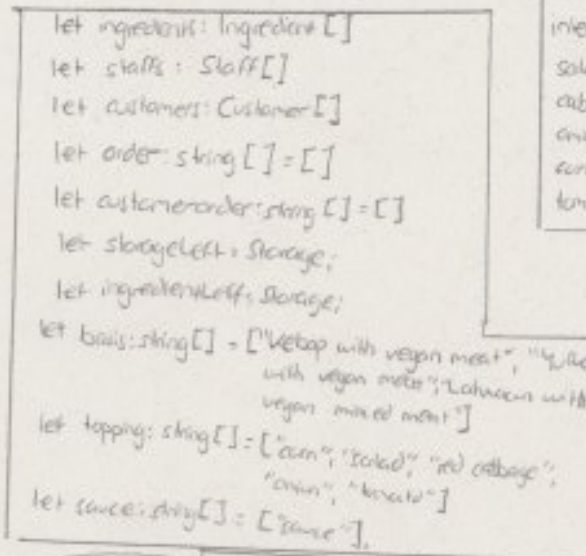 let ingredients: Ingredient []
let staffs: Staff[]
let customers: Customer[]
let order: string [] = []
let customerorder: string [] = []
let storageLeft: Storage;
let ingredientLeft: Storage;
let basis: string[] = ["Kebap with vegan meat", "
with vegan meat", "Lahmacun with
vegan minced meat"]
let topping: string[] = ["corn", "salad", "red cabbage",
"onion", "tomato"]
let sauce: string[] = ["sauce"],
inte
sala